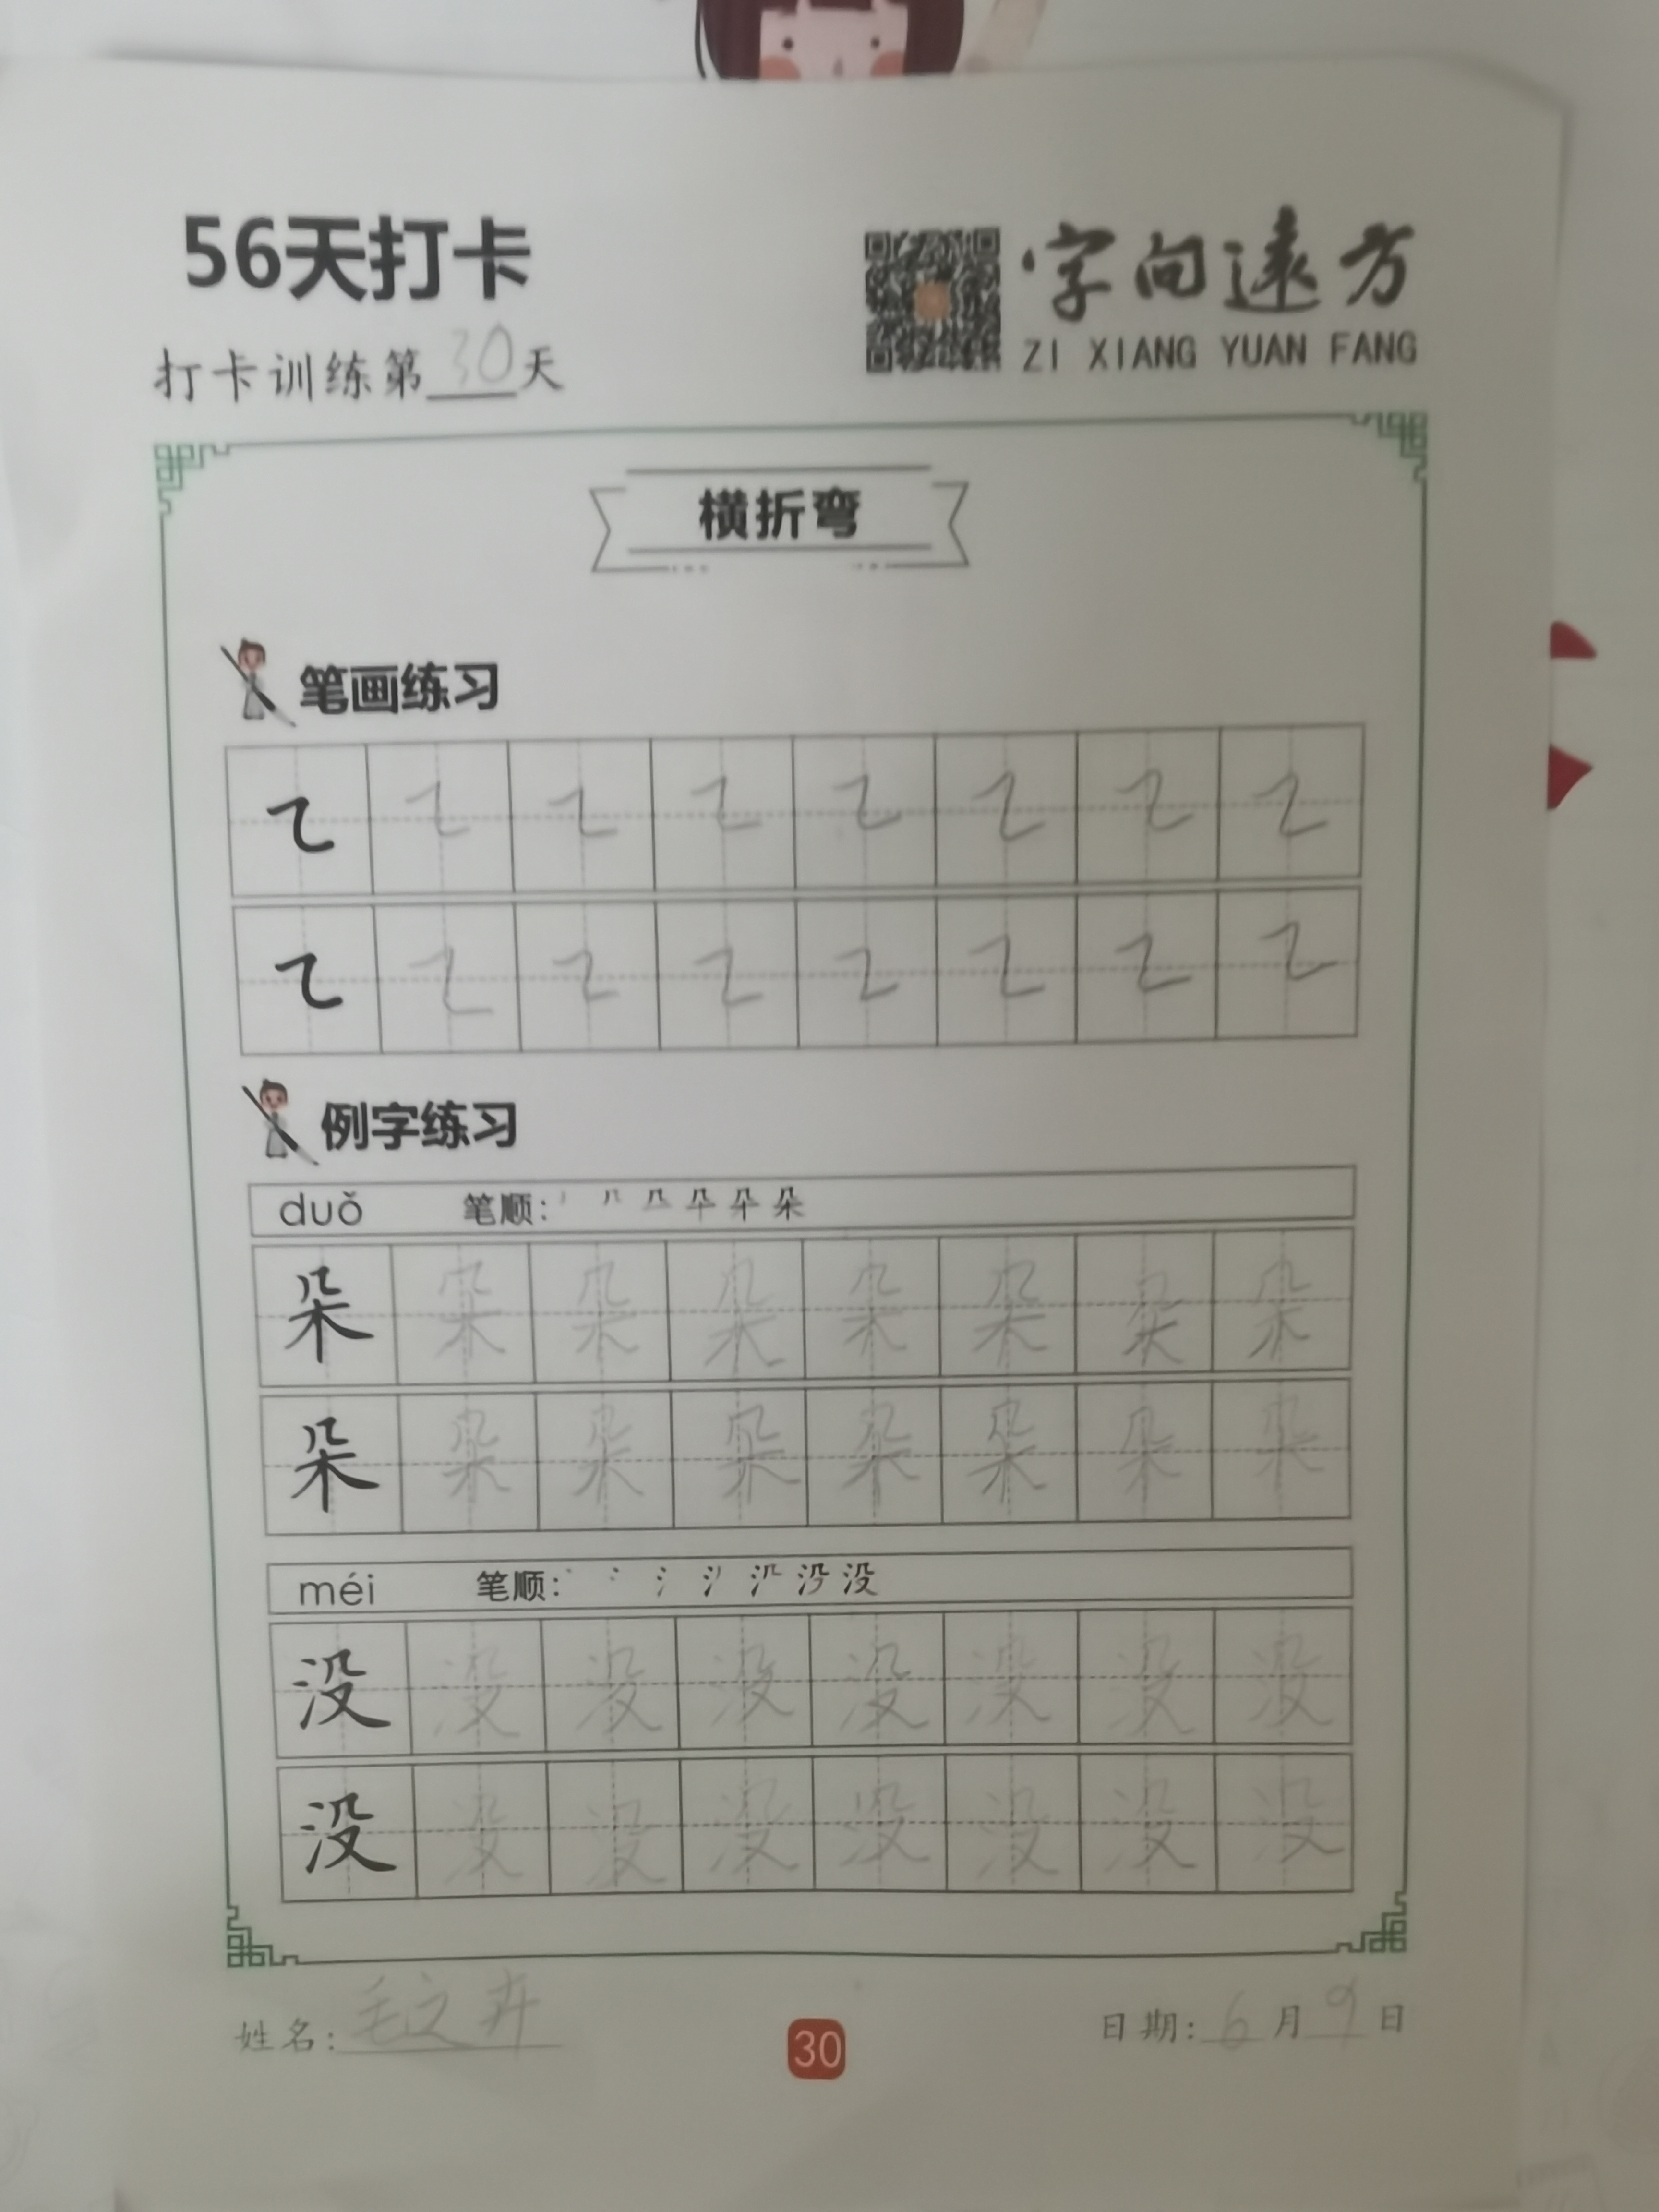 56天打卡
字向遠方
ZI XIANG YUAN FANG
打卡训练第30天
横折弯
笔画练习
例字练习
duǒ 笔顺:
朵 朵 朵 朵 朵 朵 朵 朵
朵 朵 朵 朵 朵 朵 朵 朵
méi 笔顺:
没 没 没 没 没 没 没 没
没 没 没 没 没 没 没 没
姓名: 毛之卉
30
日期: 6月9日